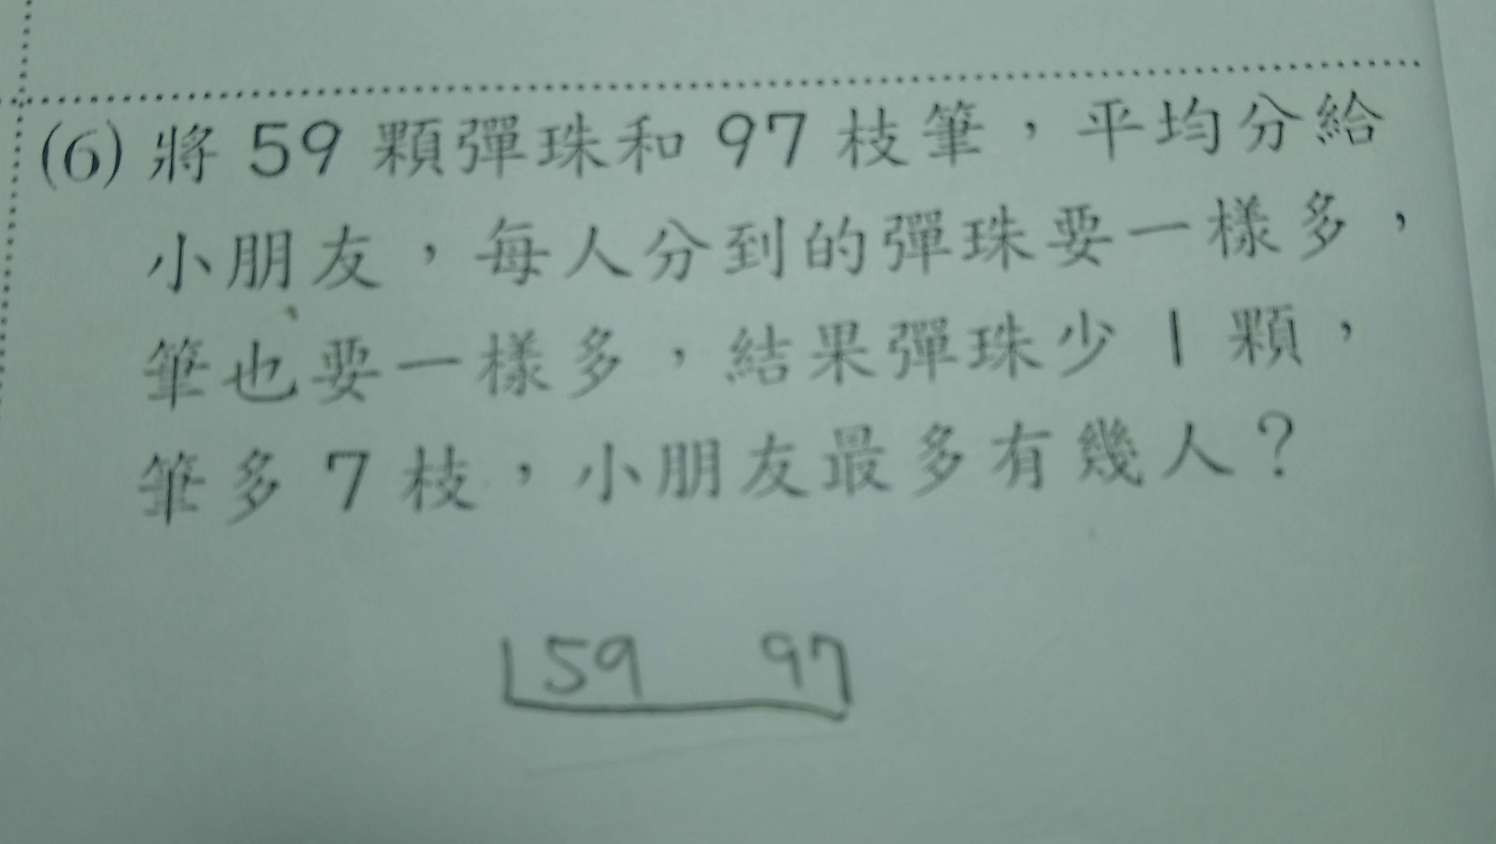 (6) 將 59 顆彈珠和 97 枝筆，平均分給
小朋友，每人分到的彈珠要一樣多，
筆也要一樣多，結果彈珠少 1 顆，
筆多 7 枝，小朋友最多有幾人？
59 97